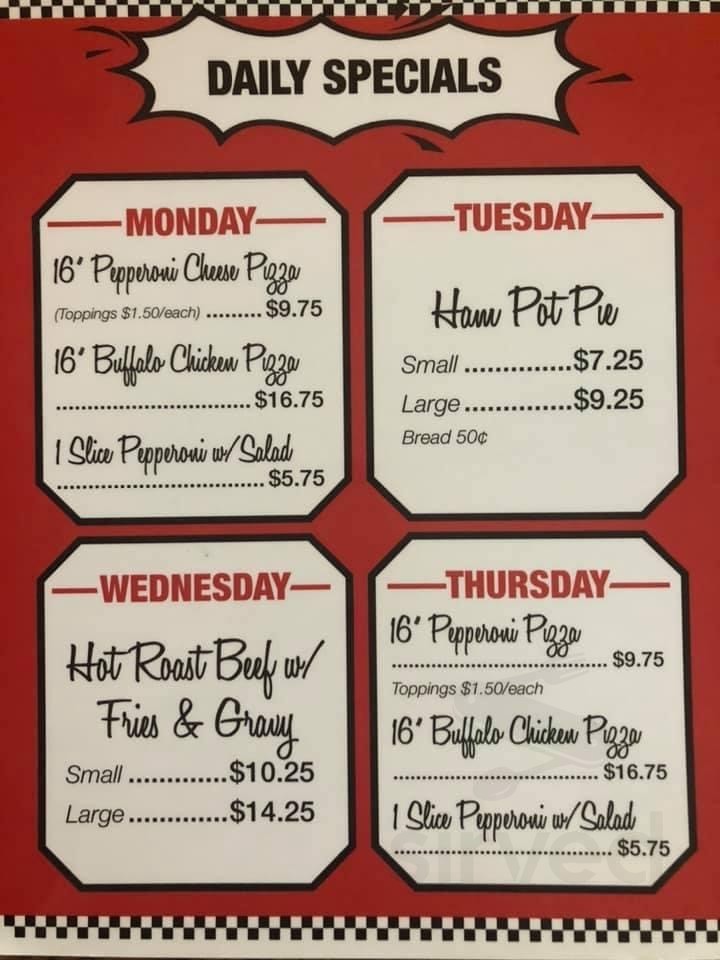 DAILY SPECIALS
MONDAY
16" Pepperoni Cheese Pizza
(Toppings $1.50/each) ......... $9.75
16" Buffalo Chicken Pizza
............................... $16.75
1 Slice Pepperoni w/Salad
................................. $5.75
TUESDAY
Ham Pot Pie
Small ..............$7.25
Large ..............$9.25
Bread 50¢
WEDNESDAY
Hot Roast Beef w/
Fries & Gravy
Small .............$10.25
Large .............$14.25
THURSDAY
16" Pepperoni Pizza
................................... $9.75
Toppings $1.50/each
16" Buffalo Chicken Pizza
................................. $16.75
1 Slice Pepperoni w/Salad
................................... $5.75
sirved